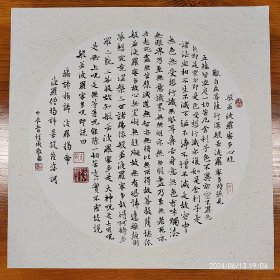 般若波羅蜜多心經
觀自在菩薩行深般若波羅蜜多時照見
五蘊皆空度一切苦厄舍利子色不異空空不異
色色即是空空即是色受想行識亦復如是舍利子是
諸法空相不生不滅不垢不淨不增不減是故空中
無色無受想行識無眼耳鼻舌身意無色聲香味觸法
無眼界乃至無意識界無無明亦無無明盡乃至無老死
亦無老死盡無苦集滅道無智亦無得以無所得故菩提薩埵依
般若波羅蜜多故心無罣礙無罣礙故無有恐怖遠離顛倒
夢想究竟涅槃三世諸佛依般若波羅蜜多故得阿耨多
羅三藐三菩提故知般若波羅蜜多是大神咒是大明咒
是無上咒是無等等咒能除一切苦真實不虛故說
般若波羅蜜多咒即說咒曰
揭諦揭諦 波羅揭諦
波羅僧揭諦 菩提薩婆訶
2024/06/13 14:10